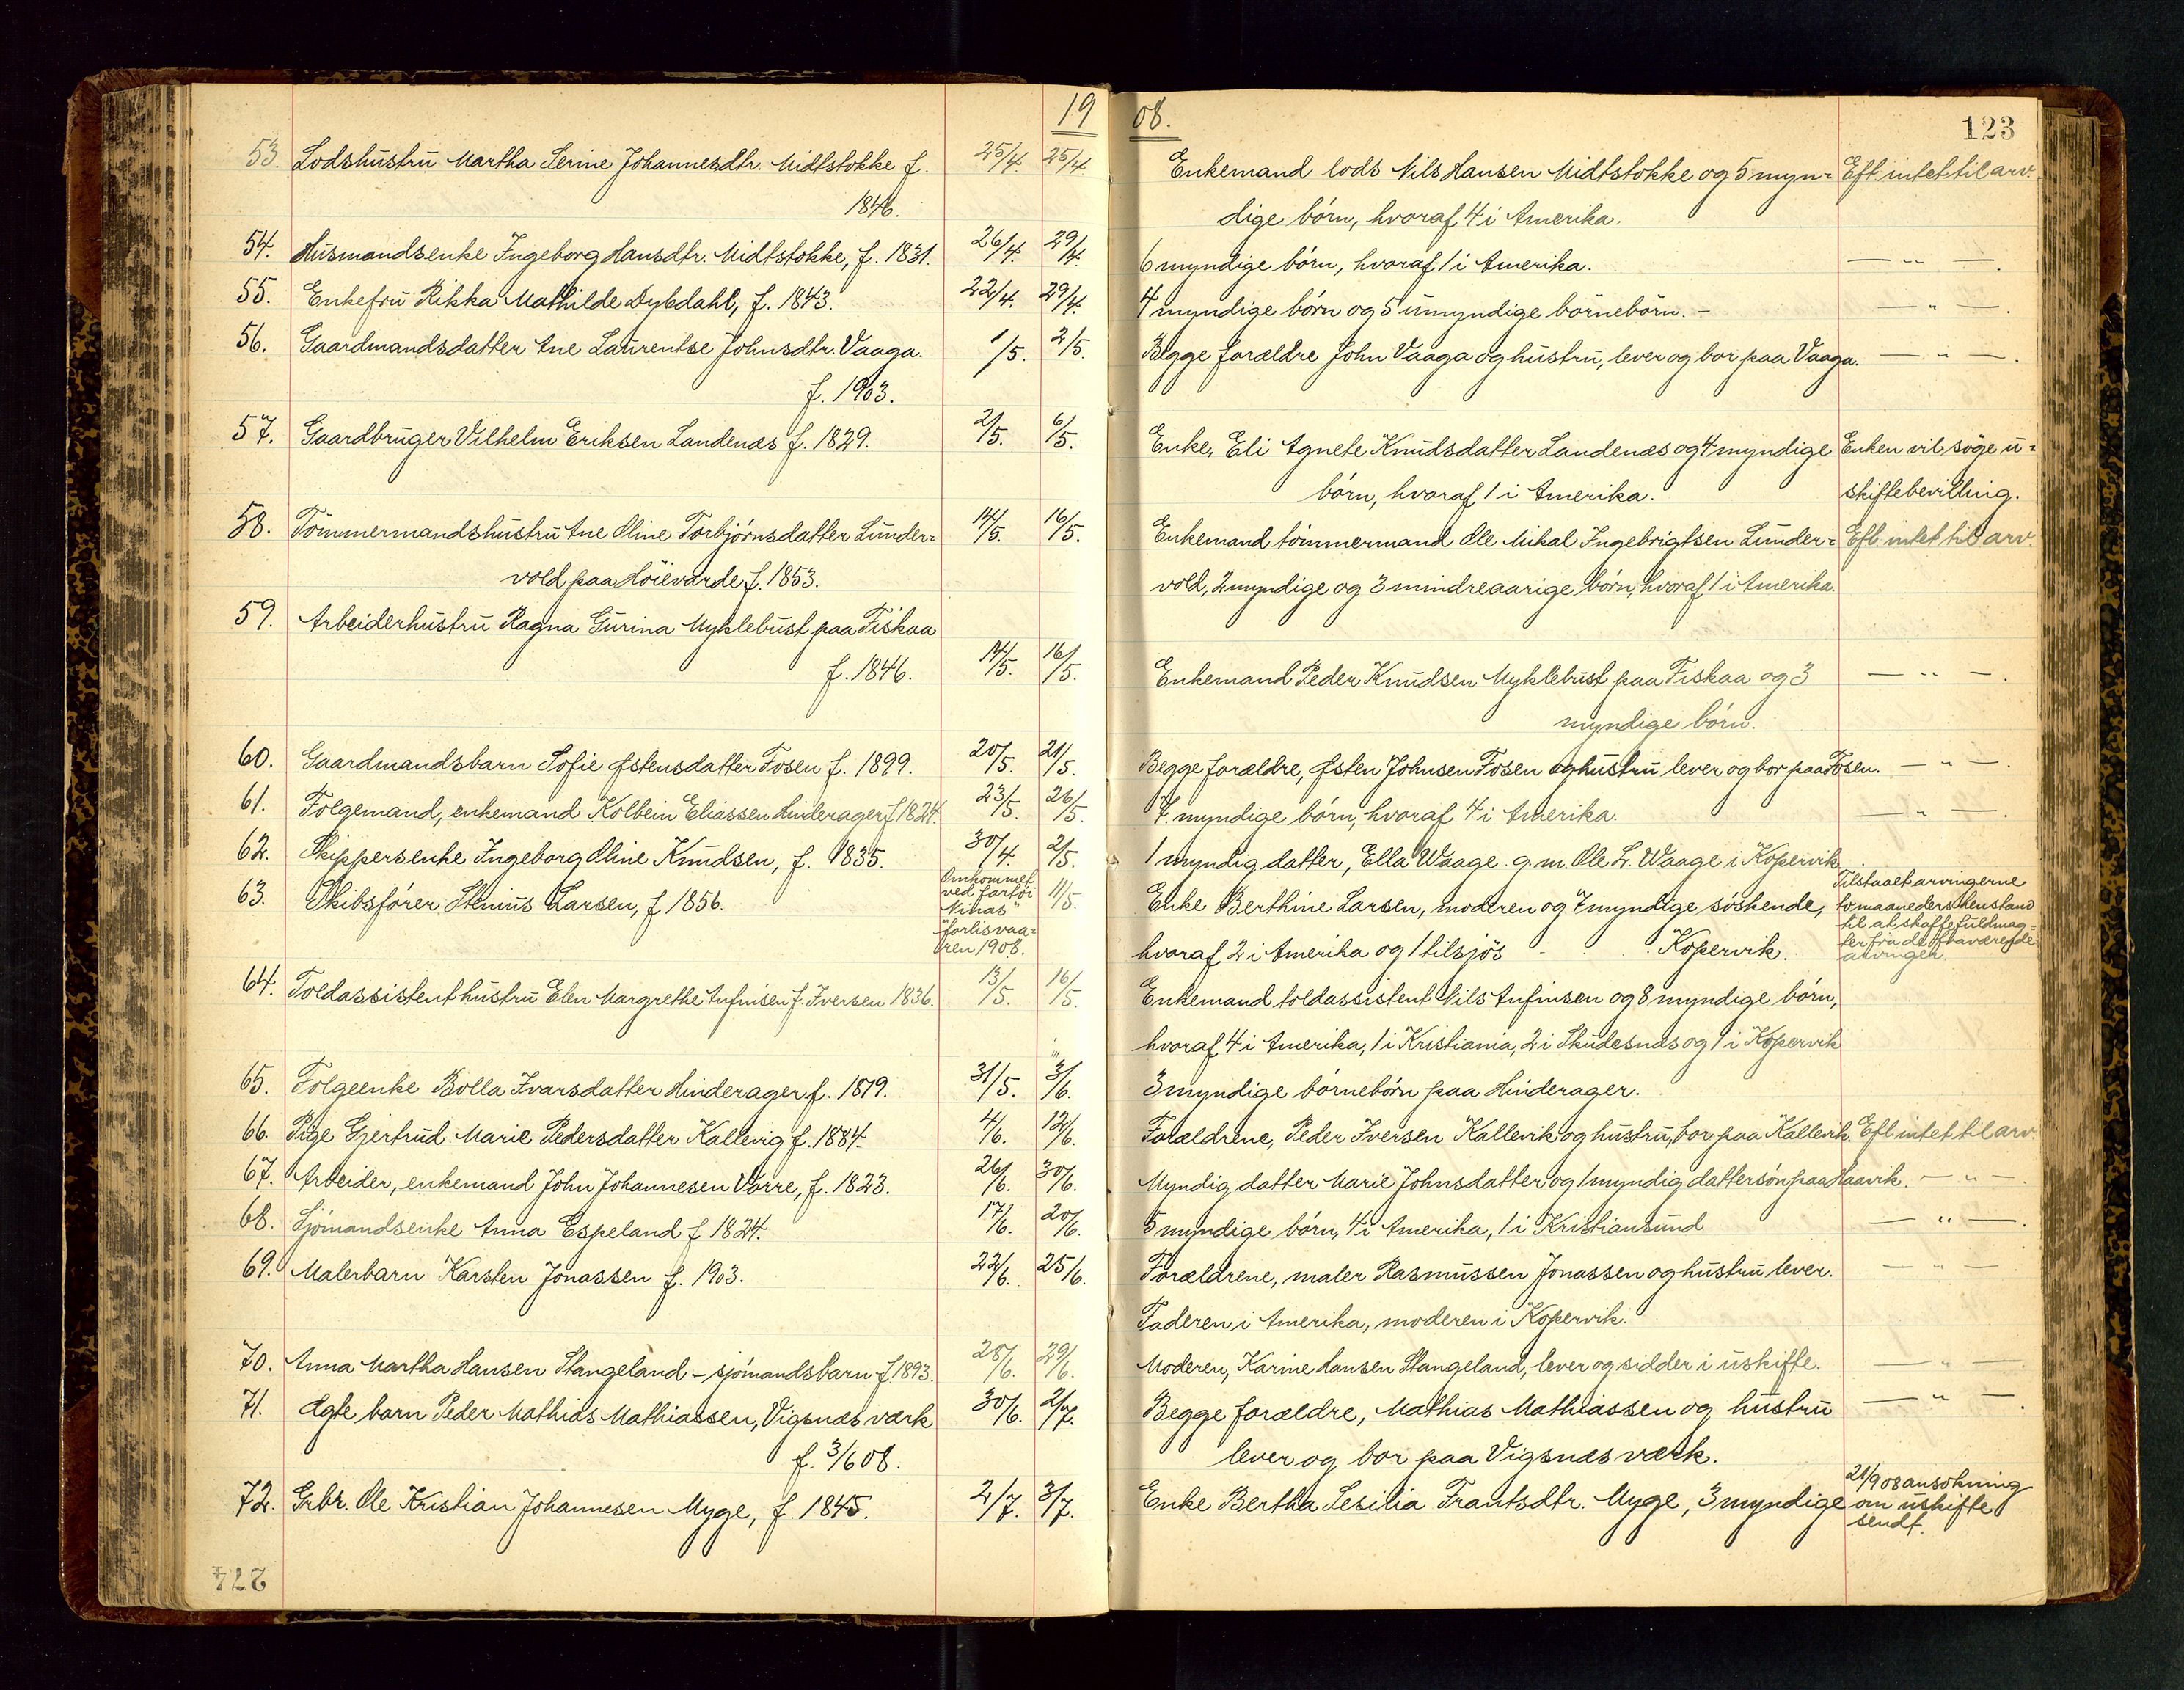 19 08.
123
53. Lodshustru Martha Serine Johannesdtr. Midtstokke f. 25/4. 25/4 Enkemand lods Nils Hansen Midtstokke og 5 myn= Eft. intet til arv.
1846. dige børn, hvoraf 4 i Amerika.
54. Husmandsenke Ingeborg Hansdtr. Midtstokke, f. 1831. 26/4. 29/4. 6 myndige børn, hvoraf 1 i Amerika. — " —.
55. Enkefru Rikka Mathilde Dybdahl, f. 1843. 22/4. 29/4. 4 myndige børn og 5 umyndige børnebørn. — — " —.
56. Gaardmandsdatter Ane Laurentse Johnsdtr. Vaaga. 1/5. 2/5. Begge forældre John Vaaga og hustru, lever og bor paa Vaaga. — " —.
f. 1903.
57. Gaardbruger Vilhelm Eriksen Landenæs f. 1829. 2/5. 6/5. Enke, Eli Agnete Knudsdatter Landenæs og 4 myndige Enken vil søge u=
børn, hvoraf 1 i Amerika. skiftebevilling.
58. Tømmermandshustru Ane Oline Torbjørnsdatter Lunder= 14/5. 16/5. Enkemand tømmermand Ole Mikal Ingebrigtsen Lunder= Eft. intet til arv.
vold paa Høievarde f. 1853. vold, 2 myndige og 3 mindreaarige børn, hvoraf 1 i Amerika.
59. Arbeiderhustru Ragna Gurina Myklebust paa Fiskaa
f. 1846. 14/5. 16/5. Enkemand Peder Knudsen Myklebust paa Fiskaa og 3 — " —.
myndige børn.
60. Gaardmandsbarn Sofie Østensdatter Fosen f. 1899. 20/5. 21/5. Begge forældre, Østen Johnsen Fosen og hustru lever og bor paa Fosen. — " —.
61. Folgemand, enkemand Kolbein Eliassen Hinderager f. 1824. 23/5. 26/5. 7 myndige børn, hvoraf 4 i Amerika. — " —.
62. Skippersenke Ingeborg Oline Knudsen, f. 1835. 30/4. 2/5. 1 myndig datter, Ella Waage g. m. Ole L. Waage i Kopervik.
63. Skibsfører Stenius Larsen, f. 1856. Omkommet
ved fartøi
"Ninas"
forlis vaa=
ren 1908. 11/5. Enke Berthine Larsen, moderen og 7 myndige søskende,
hvoraf 2 i Amerika og 1 tilsjös - Kopervik.
Tilstaaet arvingerne
to maaneders henstand
til at skaffe fuldmag=
ter fra de fraværende
arvinger.
64. Toldassistenthustru Elen Margrethe Anfinsen f. Iversen 1836. 13/5. 16/5. Enkemand toldassistent Nils Anfinsen og 8 myndige børn,
hvoraf 4 i Amerika, 1 i Kristiania, 2 i Skudesnæs og 1 i Kopervik
65. Folgeenke Bolla Ivarsdatter Hinderager f. 1819. 31/5. 3/6. 3 myndige børnebørn paa Hinderager.
66. Pige Gjertrud Marie Pedersdatter Kallevig f. 1884. 4/6. 12/6. Forældrene, Peder Iversen Kallevik og hustru, bor paa Kallevik. Eft. intet til arv.
67. Arbeider, enkemand John Johannesen Vorre, f. 1823. 26/6. 30/6. Myndig datter Marie Johnsdatter og 1 myndig dattersøn paa Haavik. — " —.
68. Sjømandsenke Anna Espeland f. 1824. 17/6. 20/6. 5 myndige børn, 4 i Amerika, 1 i Kristiansund — " —.
69. Malerbarn Karsten Jonassen f. 1903. 22/6. 25/6. Forældrene, maler Rasmussen Jonassen og hustru lever. — " —
Faderen i Amerika, moderen i Kopervik.
70. Anna Martha Hansen Stangeland - sjømandsbarn f. 1893. 28/6. 29/6. Moderen, Karine Hansen Stangeland, lever og sidder i uskifte. — " —
71. Ægte barn Peder Mathias Mathiassen, Vigsnæs værk 30/6. 2/7. Begge forældre, Mathias Mathiassen og hustru — " —.
f. 3/6 08. lever og bor paa Vigsnæs værk.
72. Grbr. Ole Kristian Johannesen Myge, f. 1845. 2/7. 3/7. Enke Bertha Sesilia Frantsdtr. Myge, 3 myndige
21/9 08 ansökning
om uskifte
sendt.
224